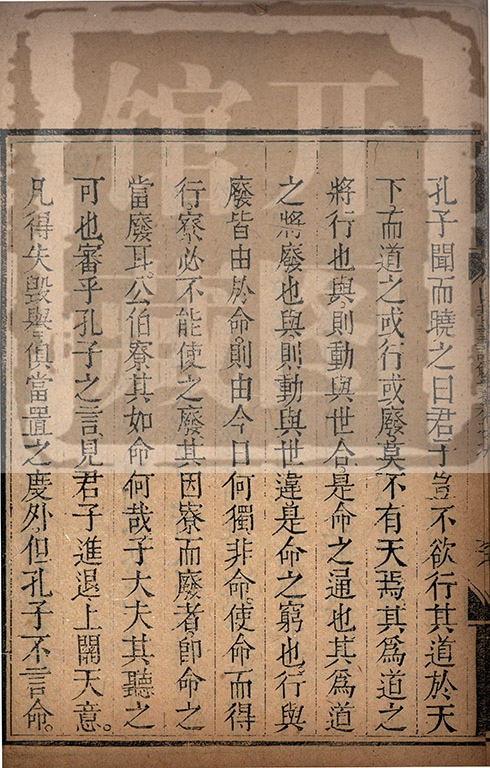 孔子聞而曉之曰君子豈不欲行其道於天
下而道之或行或廢莫不有天焉其爲道之
將行也與則動與世合是命之通也其爲道
之將廢也與則動與世違是命之窮也行與
廢皆由於命則由今日何獨非命使命而得
行寮必不能使之廢其因寮而廢者即命之
當廢耳公伯寮其如命何哉子大夫其聽之
可也審乎孔子之言見君子進退上關天意。
凡得失毀與俱當置之慶外但孔子不言命。